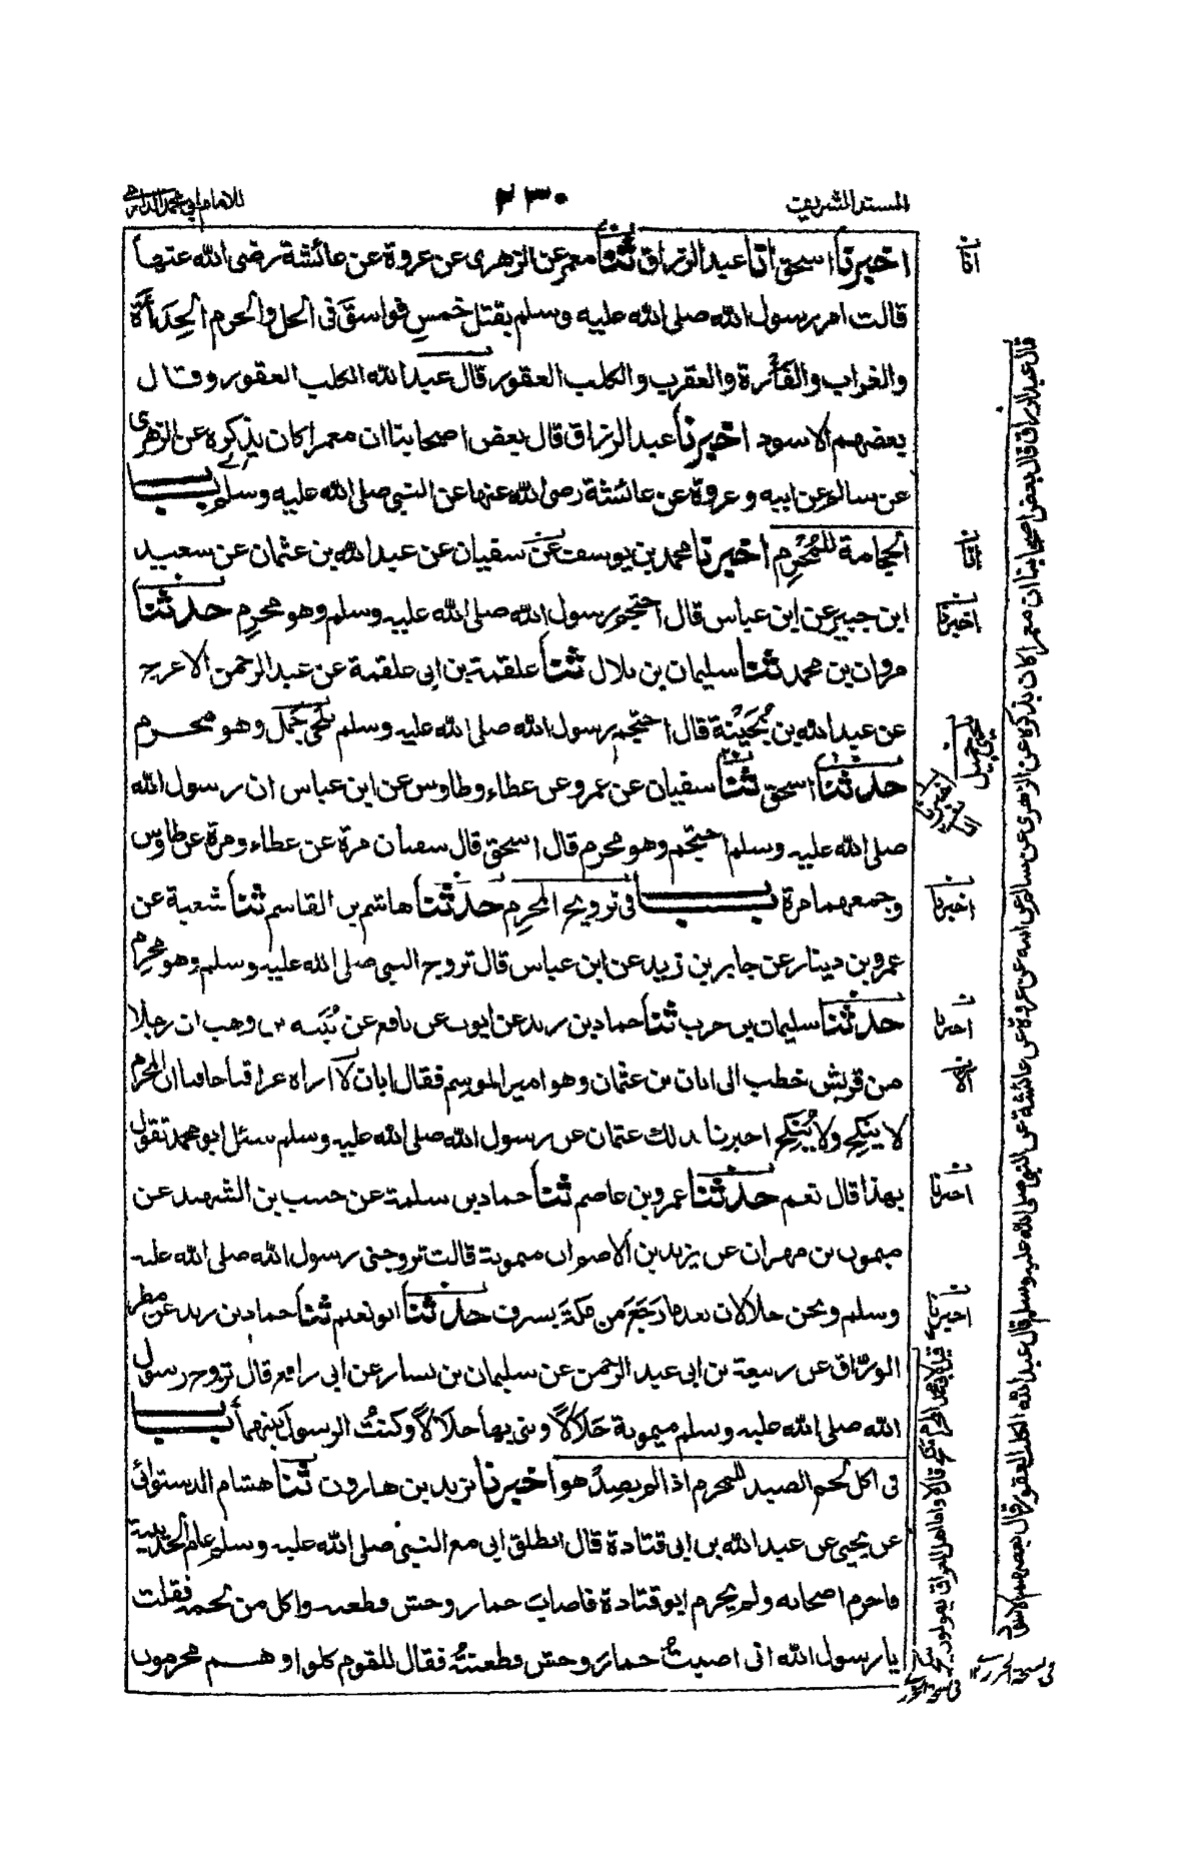 المسند الشريف
٢٣٠
للامام ابي محمد الدارمي
اخبرنا اسحق انا عبد الرزاق ثنا معمر عن الزهرى عن عروة عن عائشة رضى الله عنها
قالت امر رسول الله صلى الله عليه وسلم بقتل خمس فواسق فى الحل والحرم الحِدَأة
والغراب والفأرة والعقرب والكلب العقور قال عبد الله الكلب العقور وقال
بعضهم الاسود اخبرنا عبد الرزاق قال بعض اصحابنا ان معمرا كان يذكره عن الزهرى
عن سالم عن ابيه وعروة عن عائشة رضى الله عنها عن النبى صلى الله عليه وسلم باب
الحجامة للمُحْرِم اخبرنا محمد بن يوسف عن سفيان عن عبد الله بن عثمان عن سعيد
ابن جبير عن ابن عباس قال احتجم رسول الله صلى الله عليه وسلم وهو محرم حدثنا
مروان بن محمد ثنا سليمان بن بلال ثنا علقمة بن ابى علقمة عن عبد الرحمن الاعرج
عن عبد الله بن بُحَيْنة قال احتجم رسول الله صلى الله عليه وسلم بلحى جمل وهو محرم
حدثنا اسحق ثنا سفيان عن عمرو عن عطاء وطاوس عن ابن عباس ان رسول الله
صلى الله عليه وسلم احتجم وهو محرم قال اسحق قال سفيان مرة عن عطاء ومرة عن طاوس
وجمعهما مرة باب فى تزويج المحرِم حدثنا هاشم بن القاسم ثنا شعبة عن
عمرو بن دينار عن جابر بن زيد عن ابن عباس قال تزوج النبى صلى الله عليه وسلم وهو محرِم
حدثنا سليمان بن حرب ثنا حماد بن زيد عن ايوب عن نافع عن نُبَيه بن وهب ان رجلا
من قريش خطب الى ابان بن عثمان وهو امير الموسِم فقال ابان لا اراه عراقيا جافيا ان المحرم
لا يَنكِح ولا يُنكِح اخبرنا بذلك عثمان عن رسول الله صلى الله عليه وسلم سئل ابو محمد تقول
بهذا قال نعم حدثنا عمرو بن عاصم ثنا حماد بن سلمة عن حبيب بن الشهيد عن
ميمون بن مهران عن يزيد بن الاصم ان ميمونة قالت تزوجنى رسول الله صلى الله عليه
وسلم ونحن حلالان بعد ما رَجَعَ من مكة بسرف حدثنا ابو نعيم ثنا حماد بن زيد عن مطر
الورّاق عن ربيعة بن ابى عبد الرحمن عن سليمان بن يسار عن ابى رافع قال تزوج رسول
الله صلى الله عليه وسلم ميمونة حَلَالًا وبنى بها حلَالًا وكنتُ الرسول بينهما باب
فى اكل لحم الصيد للمحرم اذا لم يصِدْ هو اخبرنا يزيد بن هارون ثنا هشام الدستوائى
عن يحيى عن عبد الله بن ابى قتادة قال انطلق ابى مع النبى صلى الله عليه وسلم عام الحديبية
فاحرم اصحابه ولم يحرِم ابو قتادة فاصاب حمار وحش فطعنه واكل من لحمه فقلت
يا رسول الله انى اصبتُ حمارَ وحش فطعنتُه فقال للقوم كلوا وهم محرمون
انا
انا
اخبرنا
اخبرنا
اخبرنا
اخبرنا
اخبرنا
قال عبد الرزاق قال بعض اصحابنا ان معمرا كان يذكره عن الزهرى عن سالم عن ابيه عن عروة عن عائشة عن النبى صلى الله عليه وسلم قال عبد الله الكلب العقور قال بعضهم الاسود